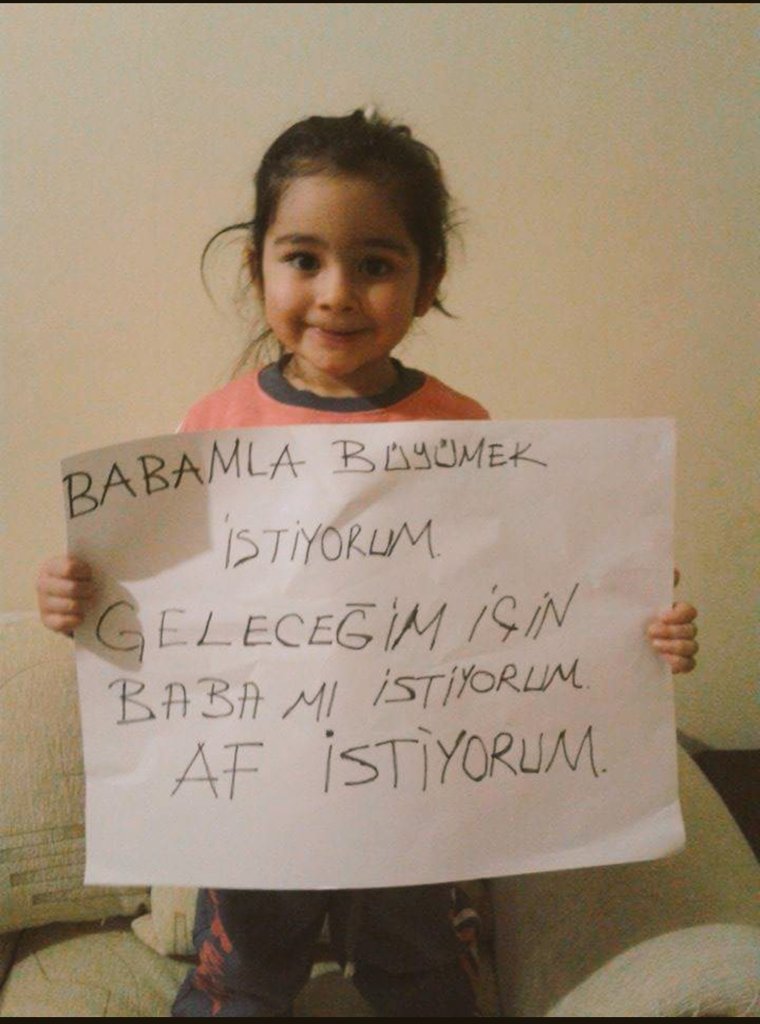 BABAMLA BÜYÜMEK
İSTİYORUM.
GELECEĞİM İÇİN
BABA MI İSTİYORUM.
AF İSTİYORUM.